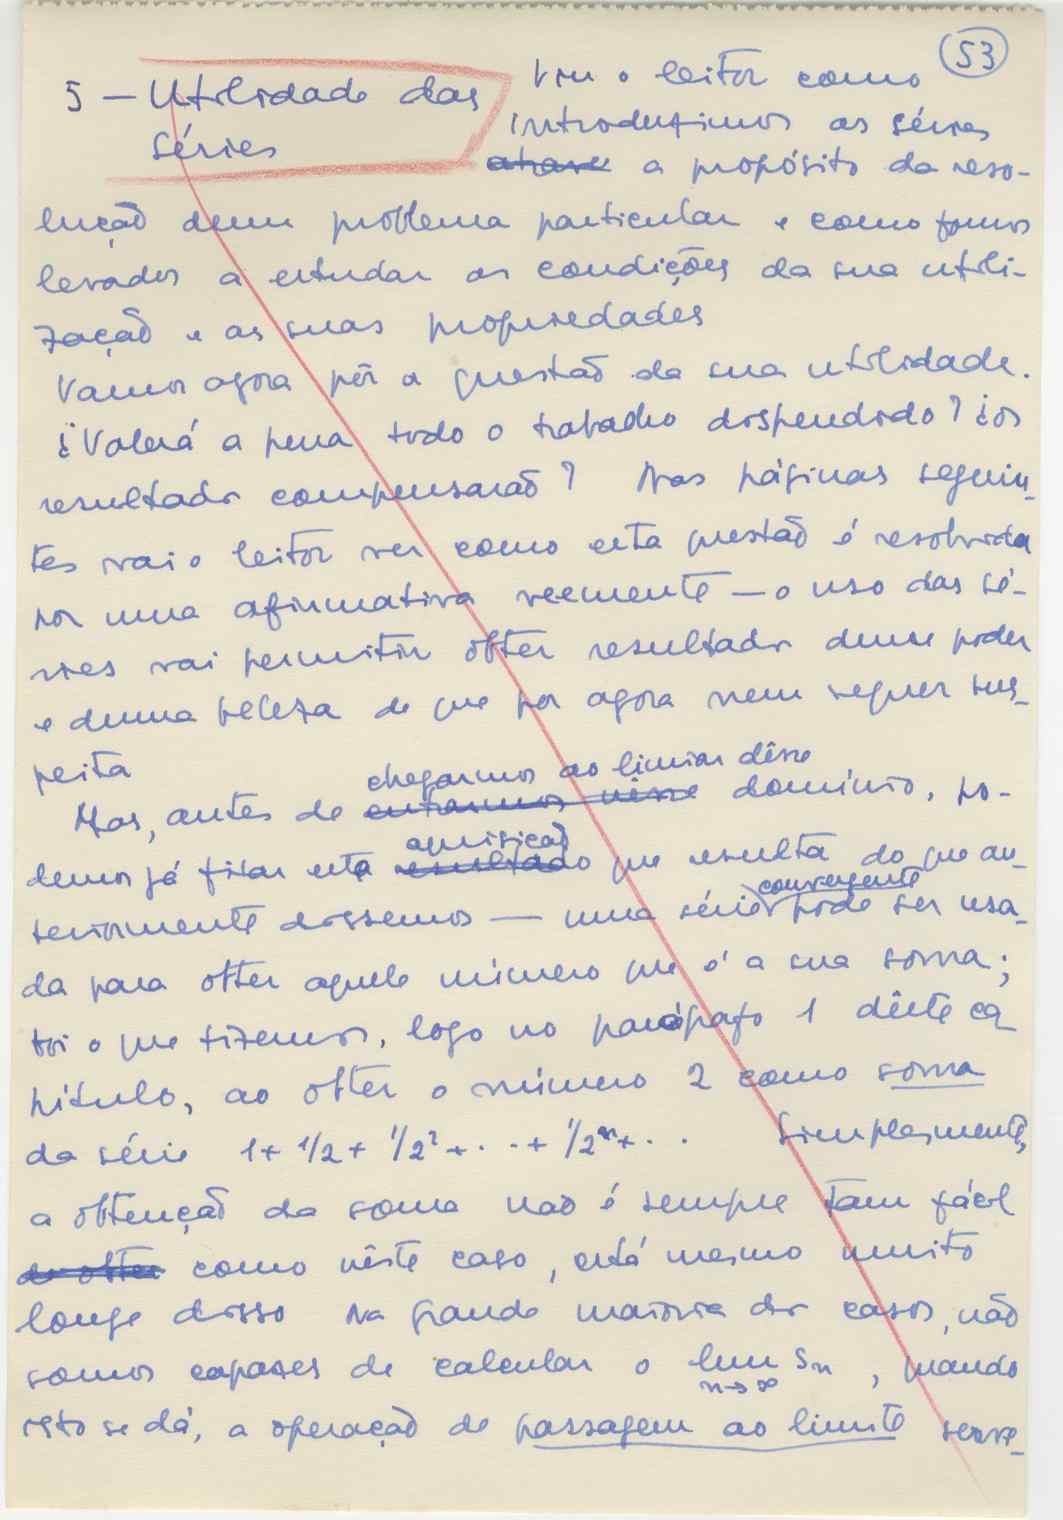 53
5 — Utilidade das
Séries
Viu o leitor como
introduzimos as séries
atrave a propósito da reso-
lução dum problema particular e como fomos
levados a estudar as condições da sua utili-
zação e as suas propriedades
Vamos agora pôr a questão da sua utilidade.
¿Valerá a pena todo o trabalho dispendido? ¿os
resultados compensarão? Nas páginas seguin-
tes vai o leitor ver como esta questão é resolvida
por uma afirmativa veemente — o uso das sé-
ries vai permitir obter resultados dum poder
e duma beleza de que por agora nem sequer sus-
peita
chegarmos ao limiar dêsse
Mas, antes de entrarmos nesse domínio, po-
aquisição
demos já fixar esta resultado que resulta do que an-
convergente
teriormente dissemos — uma série pode ser usa-
da para obter aquele número que é a sua soma;
foi o que fizemos, logo no parágrafo 1 dêste ca-
pítulo, ao obter o número 2 como soma
da série 1 + 1/2 + 1/2² + · · · + 1/2ⁿ + · · Simplesmente,
a obtenção da soma não é sempre tam fácil
de obter como nêste caso, está mesmo muito
longe disso Na grande maioria dos casos, não
somos capazes de calcular o lim Sn , quando
n→∞
isto se dá, a operação de passagem ao limite serve-